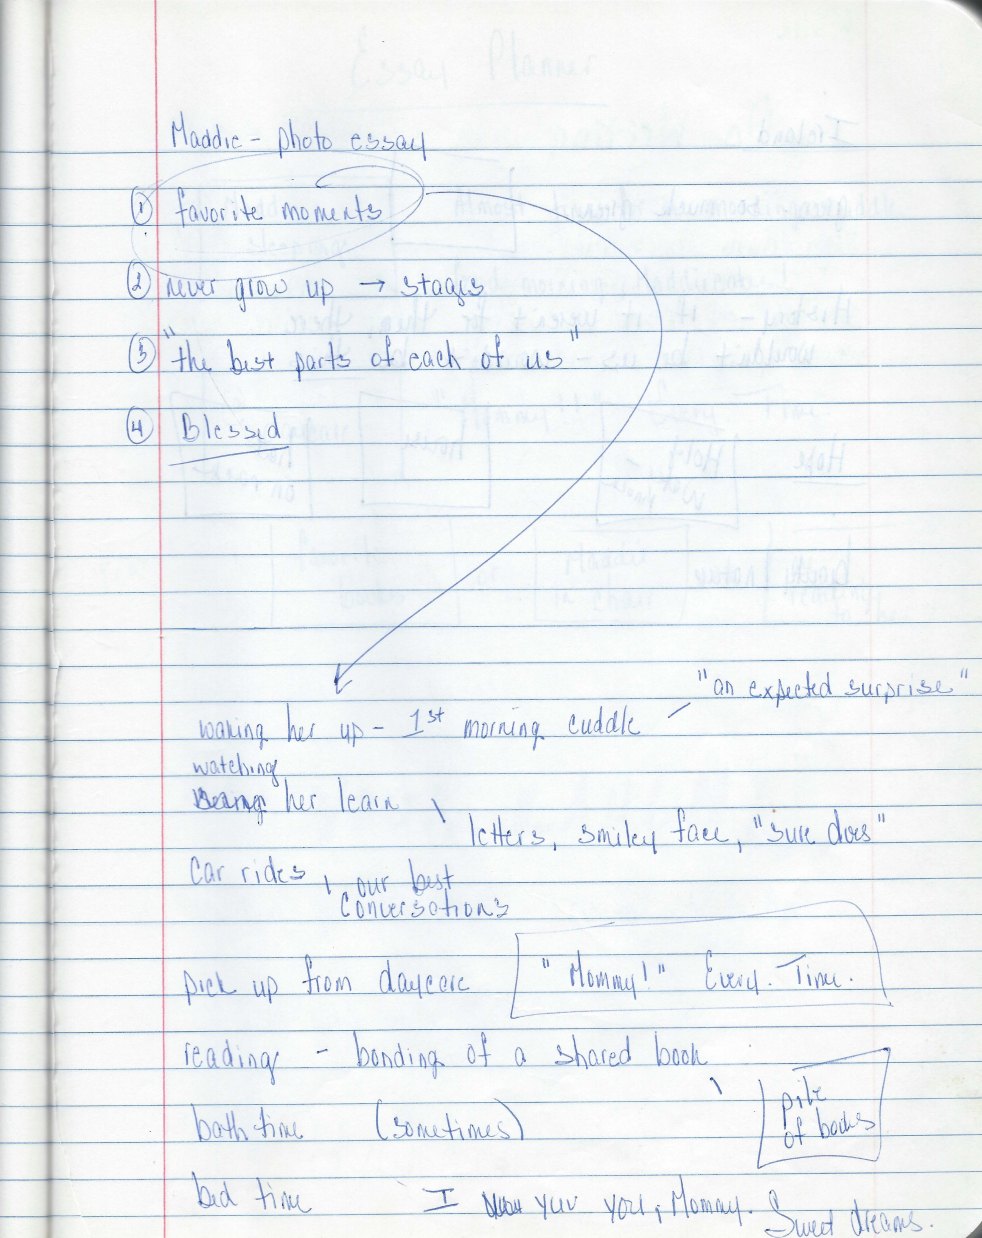 Maddie - photo essay
① favorite moments
② never grow up → stages
③ "the best parts of each of us"
④ Blessed
"an expected surprise"
waking her up - 1st morning cuddle
watching
her learn
letters, smiley face, "sure does"
car rides, our best
conversations
pick up from daycare "Mommy!" Every. Time.
reading - bonding of a shared book
pile
of books
bath time (sometimes)
bed time I yuv you, Mommy.
Sweet dreams.